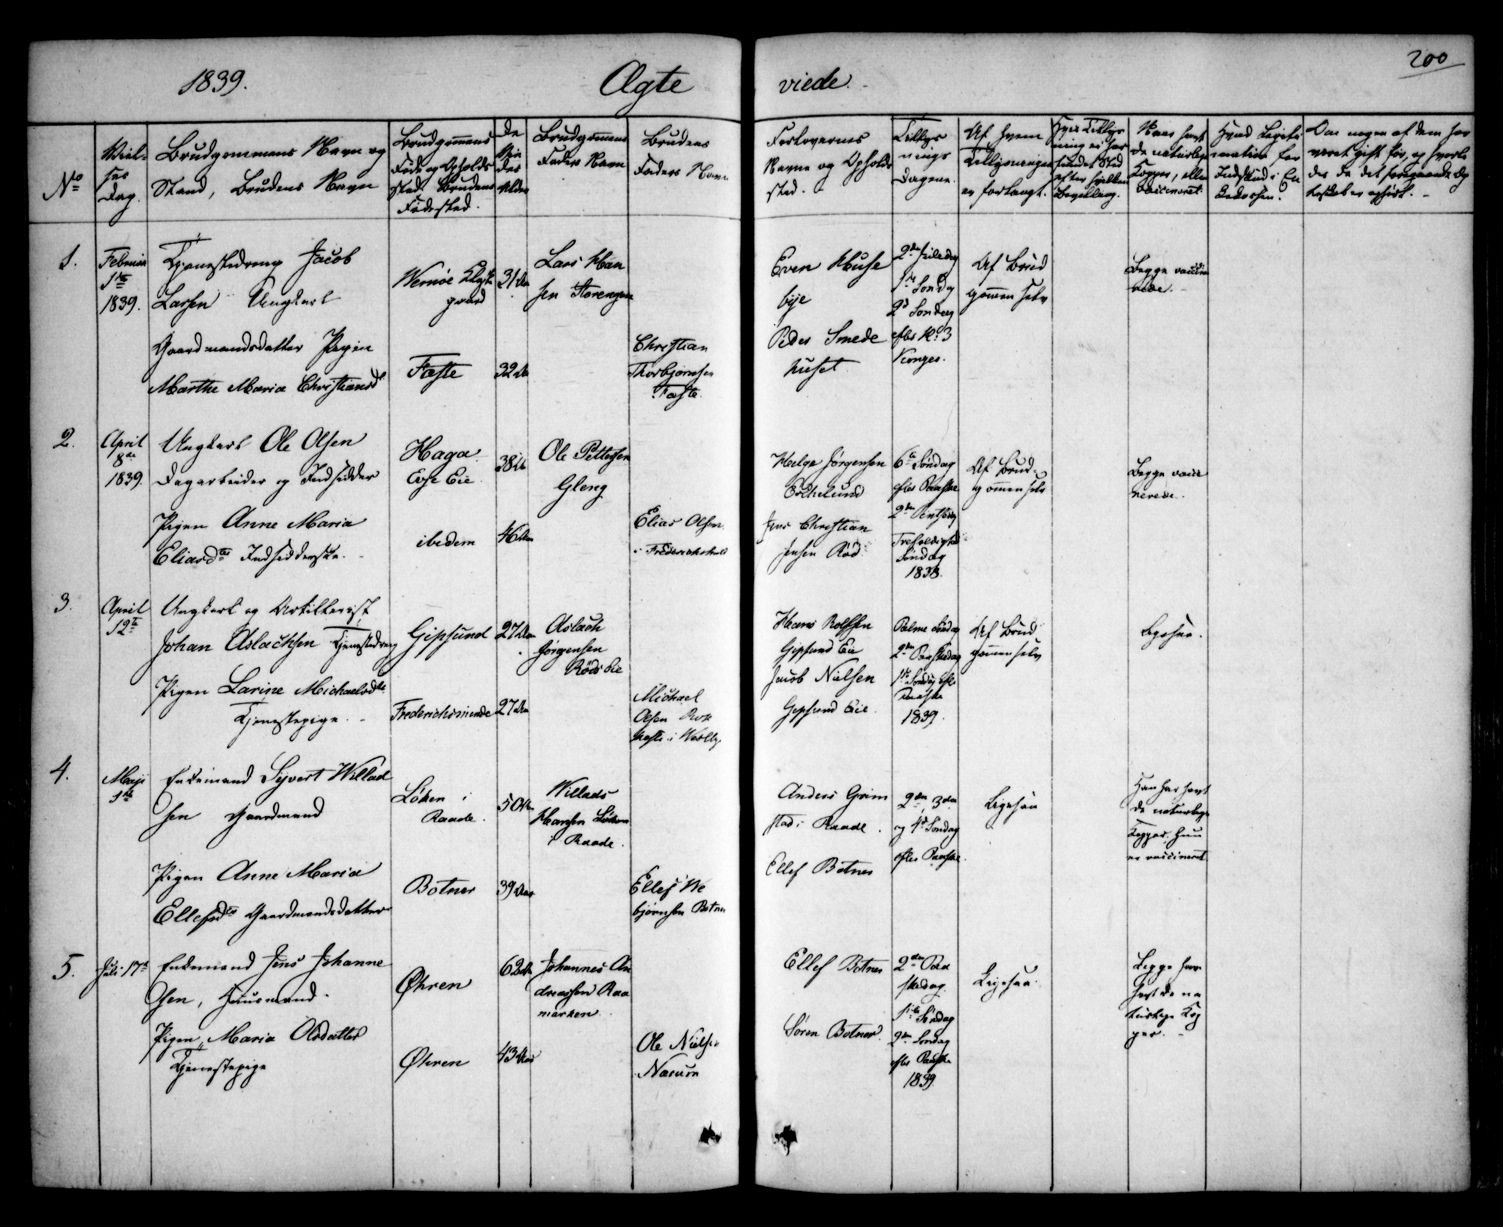 200
1839.
Ægte viede.
No
Viel-
ses
Dag.
Brudgommens Navn og
Stand, Brudens Navn
Brudgommens
Føde og Opholds
sted, Brudens
Fødested.
De
Vie
des
Alder
Brudgommens
Faders Navn
Brudens
Faders Navn
Forlovernes
Navne og Opholds
sted.
Tillys-
nings
Dagene.
Af hvem
Tillysningen
er forlangt.
Naar havt
de naturlige
Kopper, eller
vaccineret.
Om nogen af dem har
været gift før, og hvorle-
des da det foregaaende Æg
1.
Februar
1ste
1839.
Tjenestedreng Jacob
Larsen Ungkarl
Gaardmandsdatter Pigen
Marthe Maria Christiansdr
Wernøe Klost
gaard
Fæste
31 Aar
32 Aar
Lars Han
sen Storengen
Christian
Thorbjørnsen
Fæste.
Even Huse
bye
Peder Smede
huset
1ste Søndag
2d Søndag
Af Brud
gommen selv
Begge vacci
nerede.
2.
April
8de
1839.
Ungkarl Ole Olsen
Dagarbeider og Indsidder
Pigen Anne Maria
Eliasdtr Indsidderske.
Haga
Eie
ibidem
38 Aar
46 Aar
Ole Pettersen
Gleng
Elias Olsen
i Frederikshald
Helge Jørgensen
Jens Christian
Jensen Rød
6te Søndag
efter Paaske
Trefoldigheds
Søndag
1838.
Af Brud-
gommen selv
Begge vacci
nerede.
3.
April
12te
Ungkarl og Artillerist
Johan Aslachsen Tjenestedreng
Pigen Larine Michaelsdtr
Tjenestepige.
Gipsund
Frederichsminde
27 Aar
27 Aar
Aslach
Jørgensen
Røds Eie
Michael
Olsen
Hans Rolfsen
Gipsund Eie
Jacob Nielsen
Gipsund Eie.
Palme Søndag
2den Paaskedag
1ste Søndag efter
Paaske
1839.
Af Brud
gommen selv
Ligesaa.
4.
Maji
Enkemand Syvert Willad
sen Gaardmand
Pigen Anne Maria
Ellefsdtr Gaardmandsdatter
Løken i
Raade.
Botner
50 Aar
39 Aar
Willads
Hansen Løken
i Raade.
Ellef We
bjørnsen Botner
Anders Grim
stad i Raade.
Ellef Botner
2den, 3die
og 4de Søndag
efter Paaske.
Ligesaa
Han har havt
de naturlige
Kopper, hun
er vaccineret
5.
Juli 17de
Enkemand Jens Johanne
sen, Huusmand.
Pigen Maria Olsdatter
Tjenestepige
Øhren
Øhren
62 Aar
43 Aar
Johannes An
dreassen Raa
marken.
Ole Nielsen
Narum
Ellef Botner
Søren Botner
2den Paa
skedag
1ste Søndag
2den Søndag
efter Paaske
1839
Ligesaa.
Begge har
havt de na
turlige Kop
per.